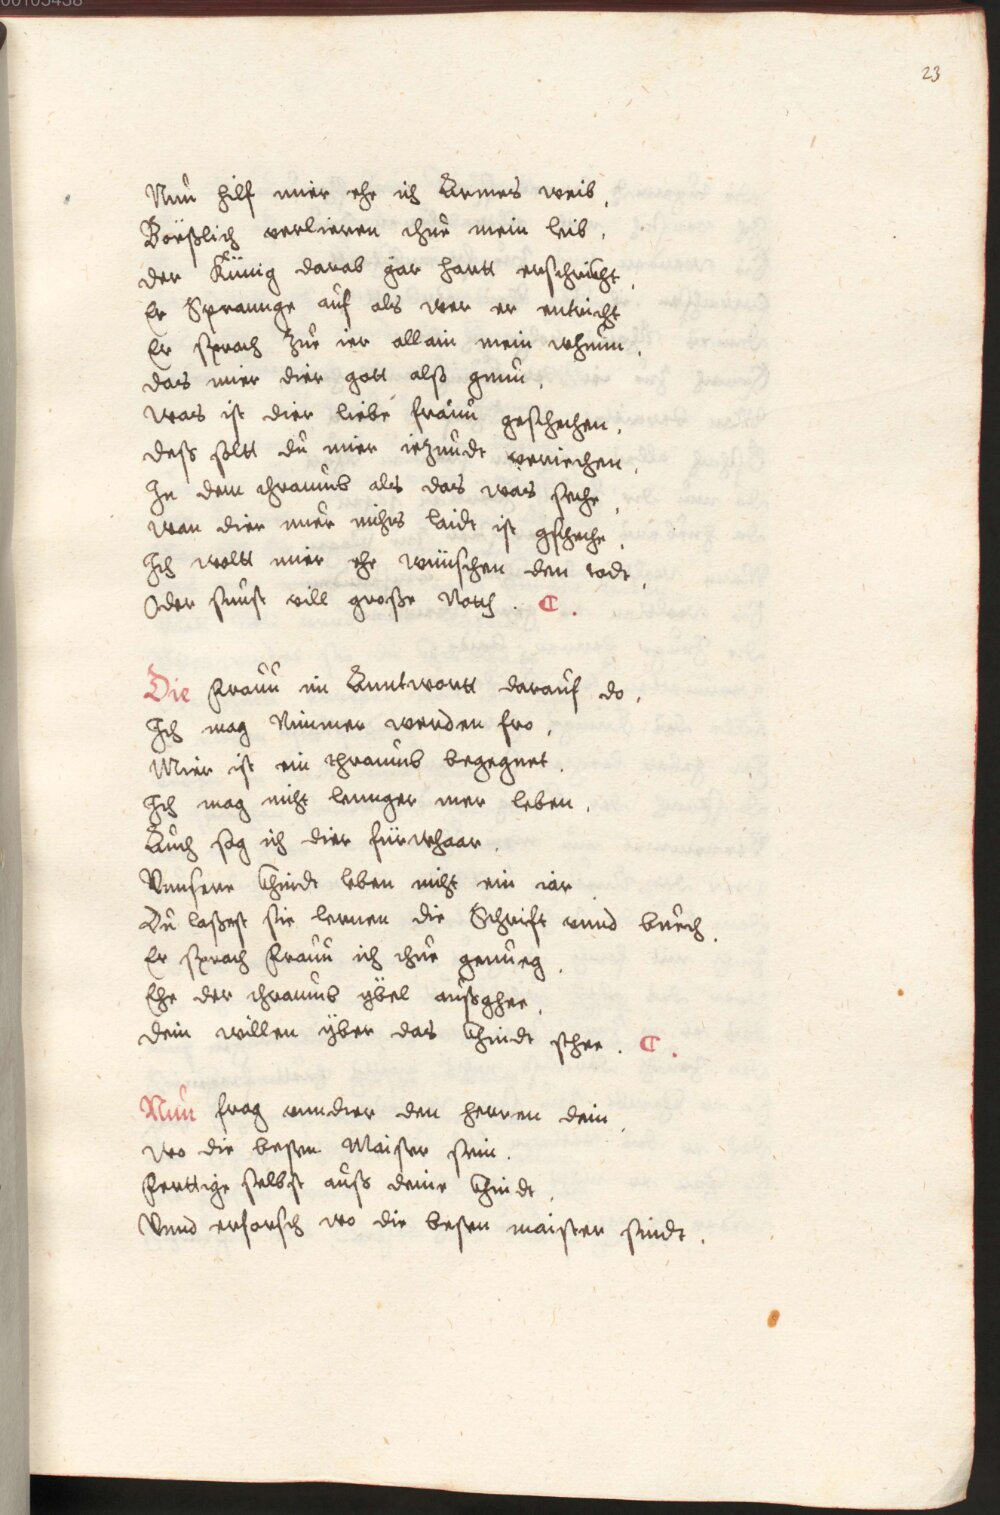 00103438
23
Nun hilf mier ehe ich Armes weib,
Bößlich verlieren thue mein leib,
der Künig darab gar hartt erschrickht,
Er Sprannge auf als wer er entricht
Er sprach zue ier allain mein whunn,
das mier dier gott alß gunn,
was ist dier liebe frauu geschechen,
deß sollt du mier iezundt veriechen,
In dem thraumb als das was seche,
wan dier nuer nichts laidt ist gscheche,
Ich wollt mier ehe wünschen den todt,
Oder sunst vill große Notth. C.
Die Frauu im Anntwortt darauf do,
Ich mag Nimmer werden fro,
Mier ist ein thraumb begegnet,
Ich mag nicht lennger mer leben,
Auch sag ich dier fürwhaar,
Vnnsere Khindt leben nicht ein iar
Du laßest sie lernen die Schrift vnnd buech,
Er sprach Frauu ich thue genueg,
Ehe der thraumb ybel außghee,
dein willen yber das Khindt schee. C.
Nun frag vnndter den herren dein,
wo die besten Maister sein.
Ferttige selbst auß deine Khindt,
Vnnd erforsch wo die besten maister sindt,